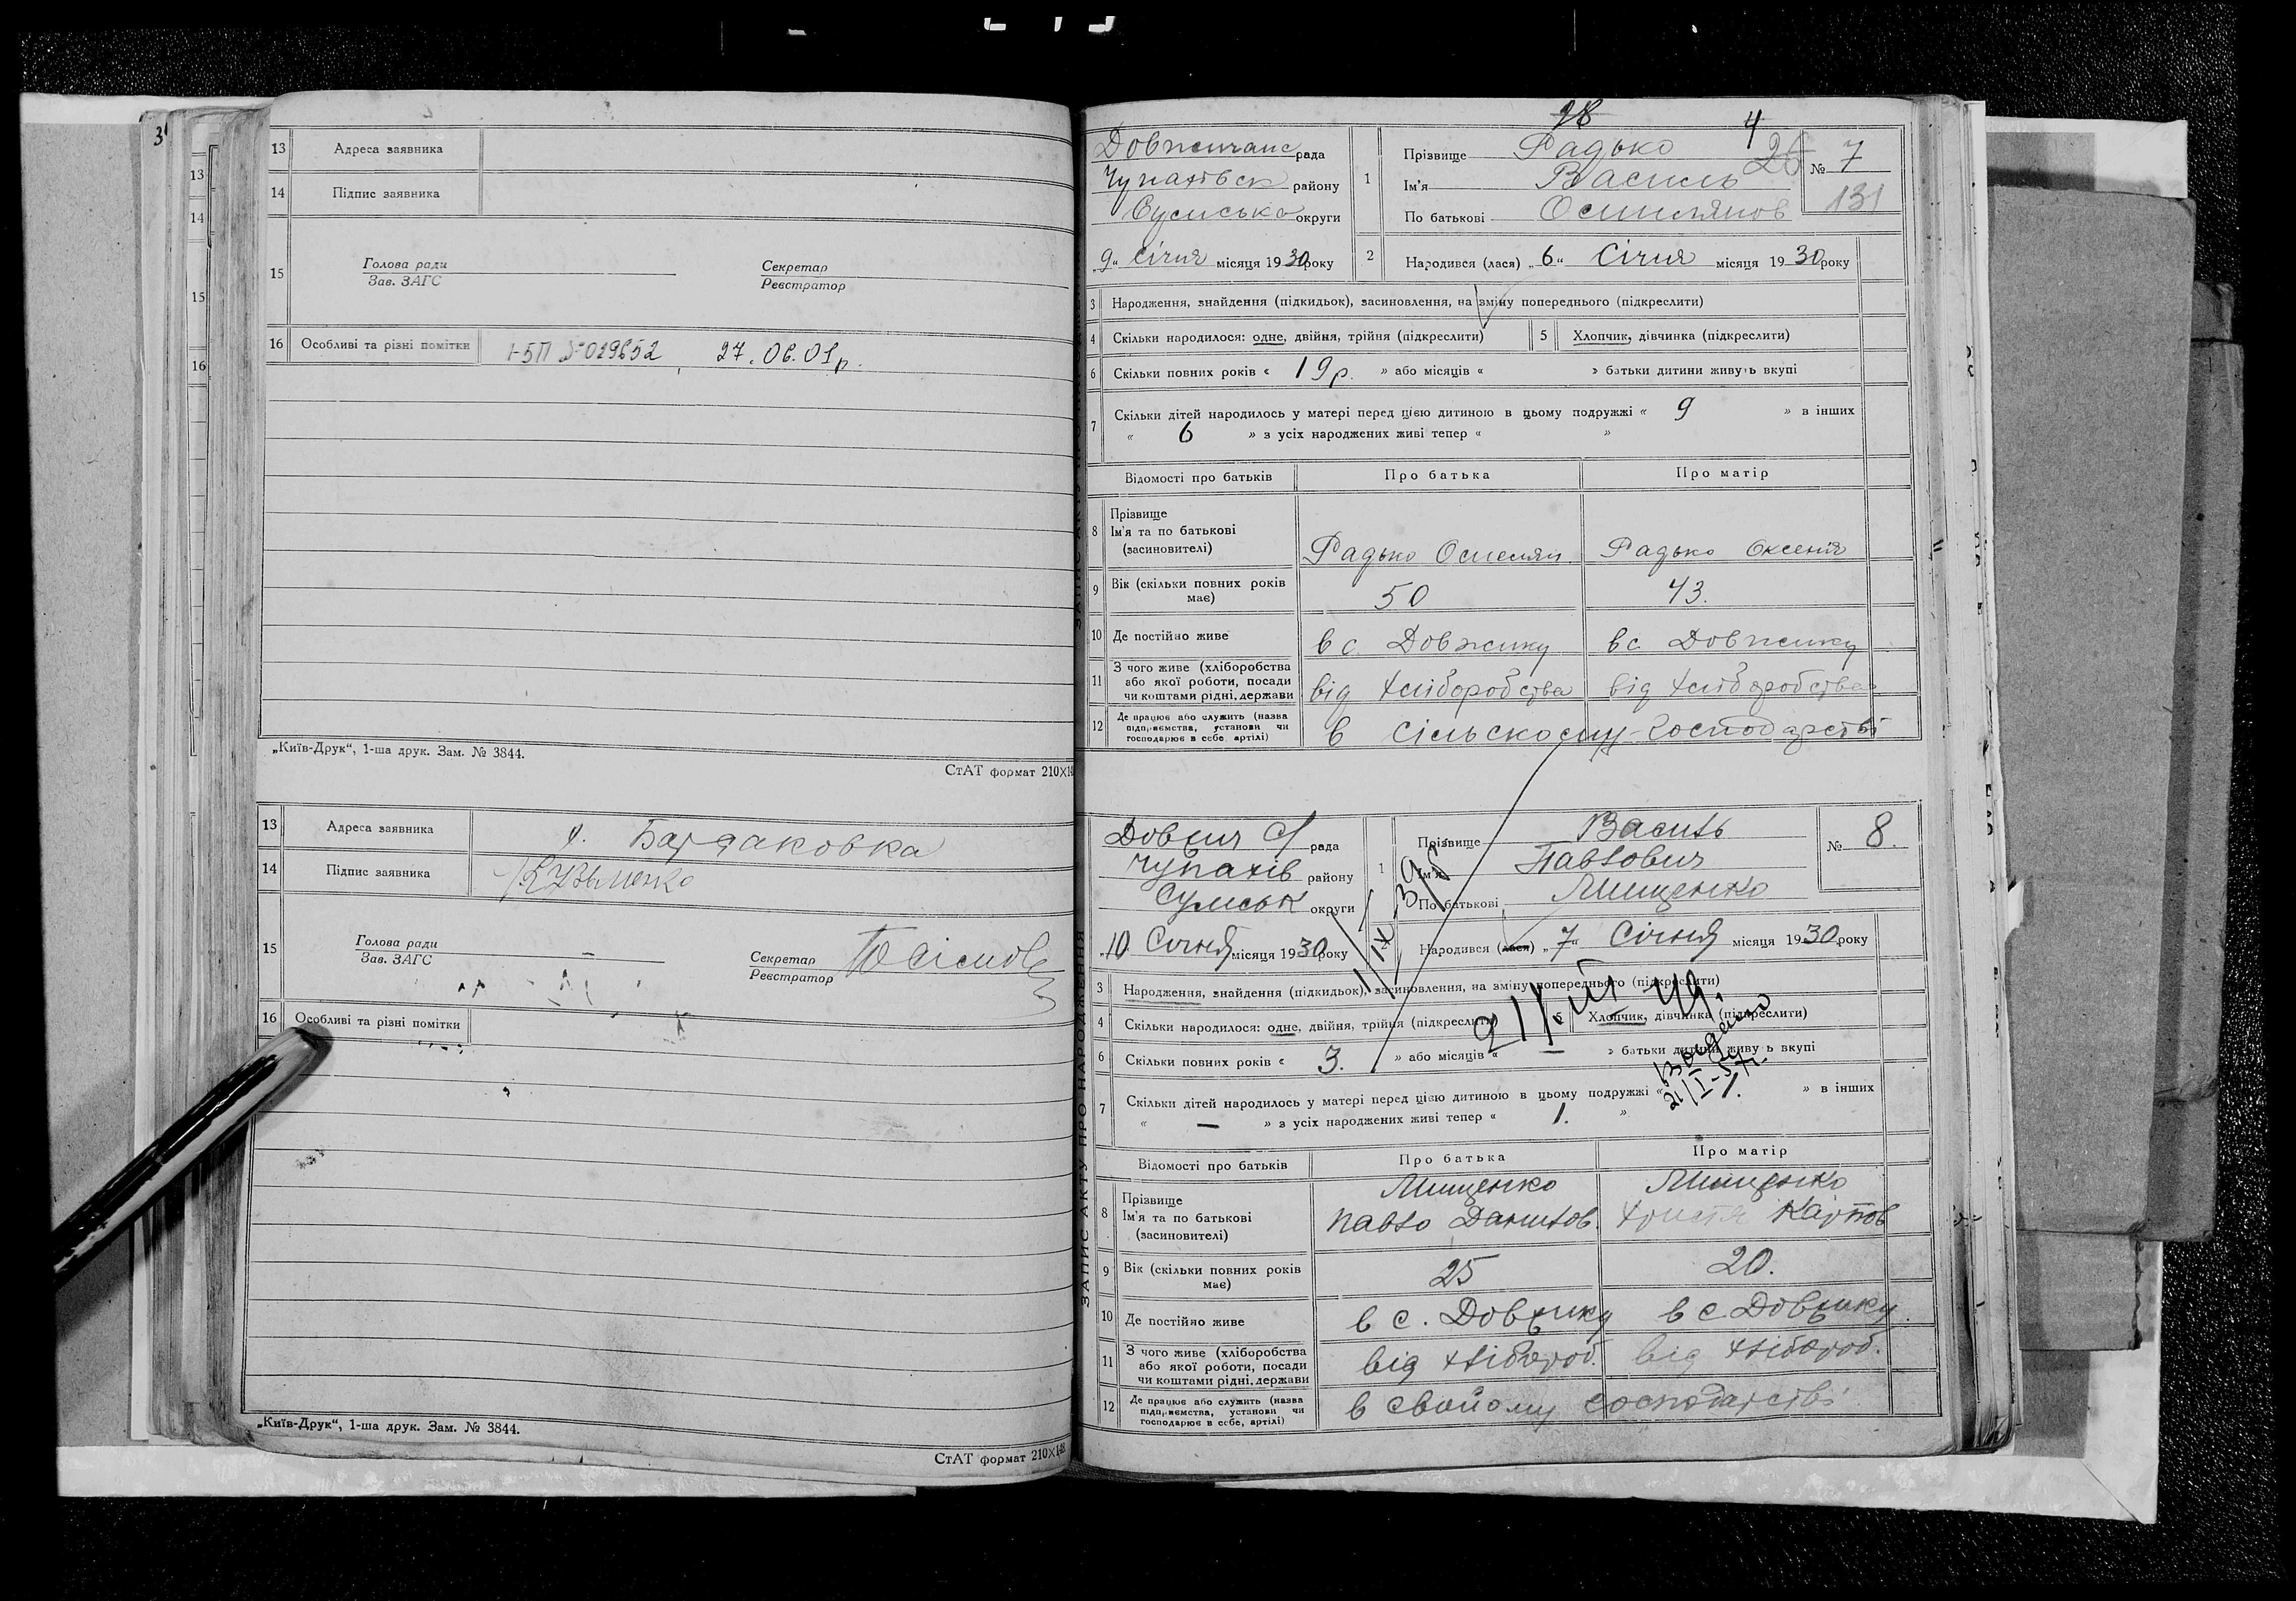 3
13 Адреса заявника
14 Підпис заявника
15 Голова ради
Зав. ЗАГС
Секретар
Реєстратор
16 Особливі та різні помітки 1-БП № 029652, 27.06.01р.
„Київ-Друк“, 1-ша друк. Зам. № 3844.
СтАТ формат 210×14
13 Адреса заявника
14 Підпис заявника Кузьменко
15 Голова ради
Зав. ЗАГС
Секретар
Реєстратор
16 Особливі та різні помітки
„Київ-Друк“, 1-ша друк. Зам. № 3844.
СтАТ формат 210×148
13
14
15
16
ЗАПИС АКТУ ПРО НАРОДЖЕННЯ
98 4
26
Довжичанс рада
Чупахівськ району
Сумська округи
„9“ Січня місяця 1930 року
1 Прізвище Радько
Ім'я Василь
По батькові Осиплянов
№ 7
131
2 Народився (лася) „6“ Січня місяця 1930 року
3 Народження, знайдення (підкидьок), засиновлення, на зміну попереднього (підкреслити)
4 Скільки народилося: одне, двійня, трійня (підкреслити) 5 Хлопчик, дівчинка (підкреслити)
6 Скільки повних років « 19р. » або місяців « » батьки дитини живуть вкупі
7 Скільки дітей народилось у матері перед цією дитиною в цьому подружжі « 9 » в інших
« 6 » з усіх народжених живі тепер « »
Відомості про батьків Про батька Про матір
8 Прізвище
Ім'я та по батькові
(засиновителі)
Радько Радько Оксенія
9 Вік (скільки повних років має) 50 43.
10 Де постійно живе в с. Довжику в с. Довжику
11 З чого живе (хліборобства
або якої роботи, посади
чи коштами рідні, держави
від хліборобства від хліборобства
12 Де працює або служить (назва
підприємства, установи чи
господарює в себе, артілі)
в сільскому господарстві
Довжич С/ рада
Чупахів району
Сумськ округи
„10 Січня місяця 1930 року
1 Прізвище Василь
Ім'я Павлович
По батькові Мищенко
№ 8.
Народився (лася) „7“ Січня місяця 1930 року
3 Народження, знайдення (підкидьок), засиновлення, на зміну попереднього (підкреслити)
4 Скільки народилося: одне, двійня, трійня (підкреслити) 5 Хлопчик, дівчинка (підкреслити)
6 Скільки повних років « 3. » або місяців « — » батьки дитини живуть вкупі
7 Скільки дітей народилось у матері перед цією дитиною в цьому подружжі « 1. » в інших
« — » з усіх народжених живі тепер « 1. »
Відомості про батьків Про батька Про матір
8 Прізвище
Ім'я та по батькові
(засиновителі)
Мищенко Мищенко
Павло Данилов. Христя Карпов
9 Вік (скільки повних років має) 25 20.
10 Де постійно живе в с. Довжику в с. Довжику.
11 З чого живе (хліборобства
або якої роботи, посади
чи коштами рідні, держави
від хлібороб. від хлібороб.
12 Де працює або служить (назва
підприємства, установи чи
господарює в себе, артілі)
в свойому господарстві